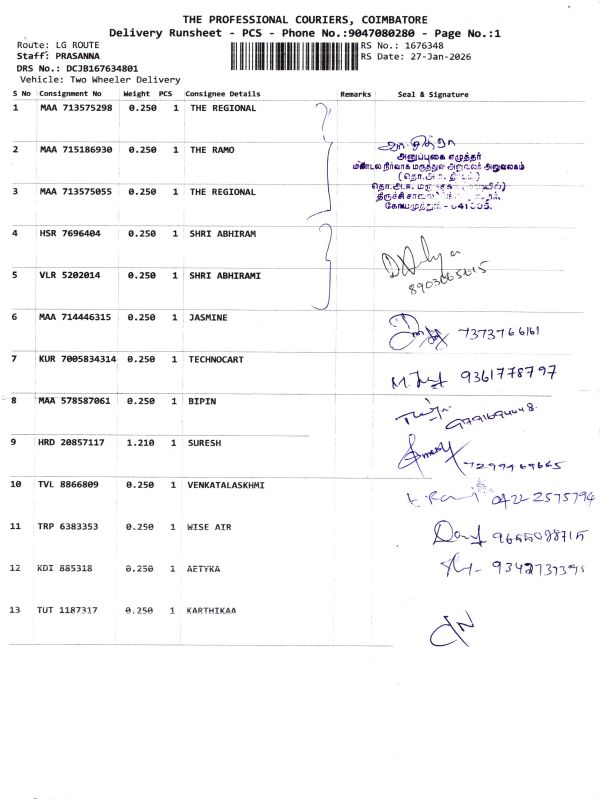 THE PROFESSIONAL COURIERS, COIMBATORE
Delivery Runsheet - PCS - Phone No.:9047080280 - Page No.:1
Route: LG ROUTE RS No.: 1676348
Staff: PRASANNA RS Date: 27-Jan-2026
DRS No.: DCJB167634801
Vehicle: Two Wheeler Delivery
S No Consignment No Weight PCS Consignee Details Remarks Seal & Signature
1 MAA 713575298 0.250 1 THE REGIONAL
2 MAA 715186930 0.250 1 THE RAMO
அனுப்புகை எழுத்தர்
மண்டல நிர்வாக மருத்துவ அலுவலர் அலுவலகம்
3 MAA 713575055 0.250 1 THE REGIONAL
கோயமுத்தூர் - 641005.
4 HSR 7696404 0.250 1 SHRI ABHIRAM
5 VLR 5202014 0.250 1 SHRI ABHIRAMI
6 MAA 714446315 0.250 1 JASMINE 7373766161
7 KUR 7005834314 0.250 1 TECHNOCART 9361778797
8 MAA 578587061 0.250 1 BIPIN
9 HRD 20857117 1.210 1 SURESH
10 TVL 8866809 0.250 1 VENKATALASKHMI 0422 2575794
11 TRP 6383353 0.250 1 WISE AIR
12 KDI 885318 0.250 1 AETYKA
13 TUT 1187317 0.250 1 KARTHIKAA